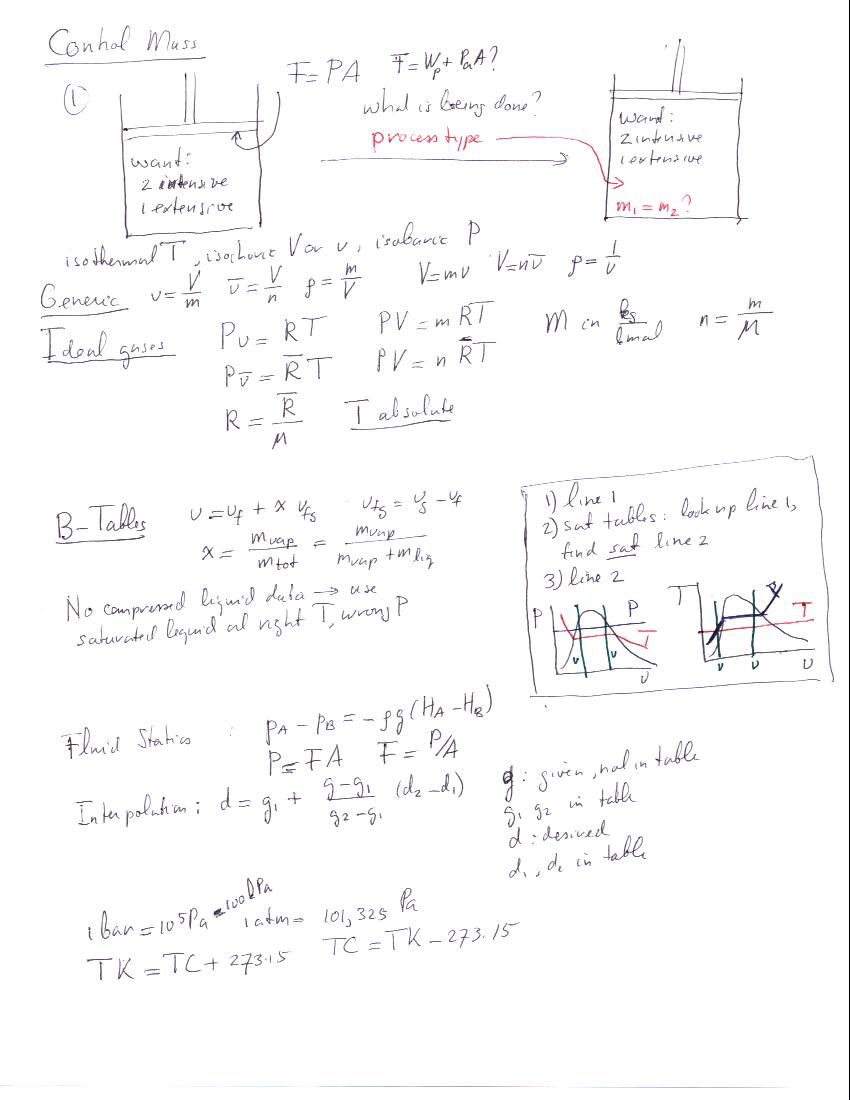 Control Mass
①
F = PA F = Wp + PaA?
what is being done?
process type
want:
2 intensive
1 extensive
want:
2 intensive
1 extensive
m₁ = m₂?
isothermal T, isochoric V or v, isobaric P
Generic v = V/m v̅ = V/n ρ = m/V V = mv V = nv̅ ρ = 1/v
Ideal gases Pv = RT PV = mRT M in kg/kmol n = m/M
Pv̅ = R̅T PV = nR̅T
R = R̅/M T absolute
B-Tables v = vf + x vfg vfg = vg − vf
x = mvap/mtot = mvap/(mvap + mliq)
No compressed liquid data → use
saturated liquid at right T, wrong P
1) line 1
2) sat tables: look up line 1,
find sat line 2
3) line 2
P P T v v v
T P T v v v
Fluid Statics : pA − pB = −ρg(HA − HB)
P = FA F = P/A
Interpolation: d = g₁ + (g−g₁)/(g₂−g₁) (d₂−d₁)
g: given, not in table
g₁ g₂ in table
d: desired
d₁, d₂ in table
1 bar = 10⁵ Pa = 100 kPa 1 atm = 101,325 Pa
TK = TC + 273.15 TC = TK − 273.15